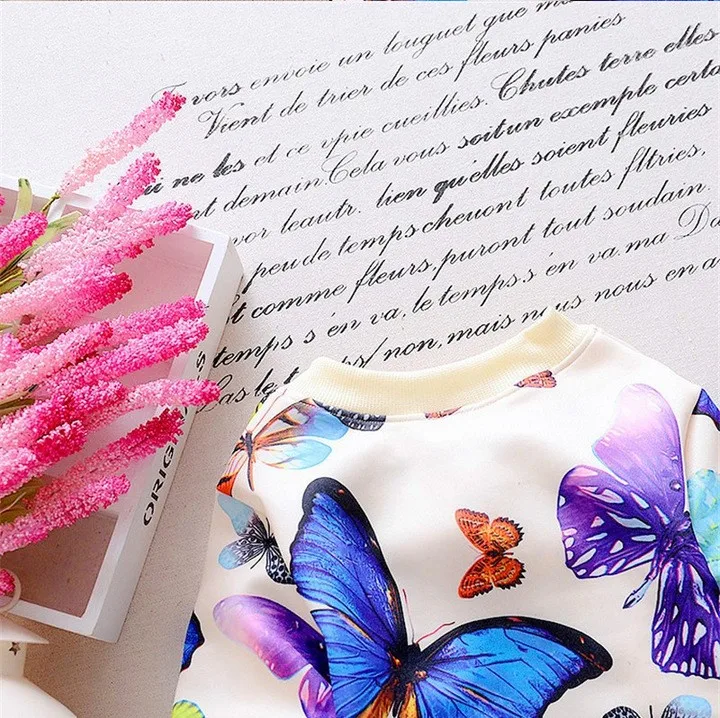 vors envoie un louguet que m
Vient de trier de ces fleurs panies
ui ne les et ce vpie cueillies. Chutes terre elles
nt demain. Cela vous soitun exemple certa
vor leautr. lien qu'elles soient fleuries
peu de temps cheuont toutes fltries,
t comme fleurs, puront tout soudain.
temps s'en va, le temps s'en va. ma Da
Las le non, mais nous nous en a
ORIG